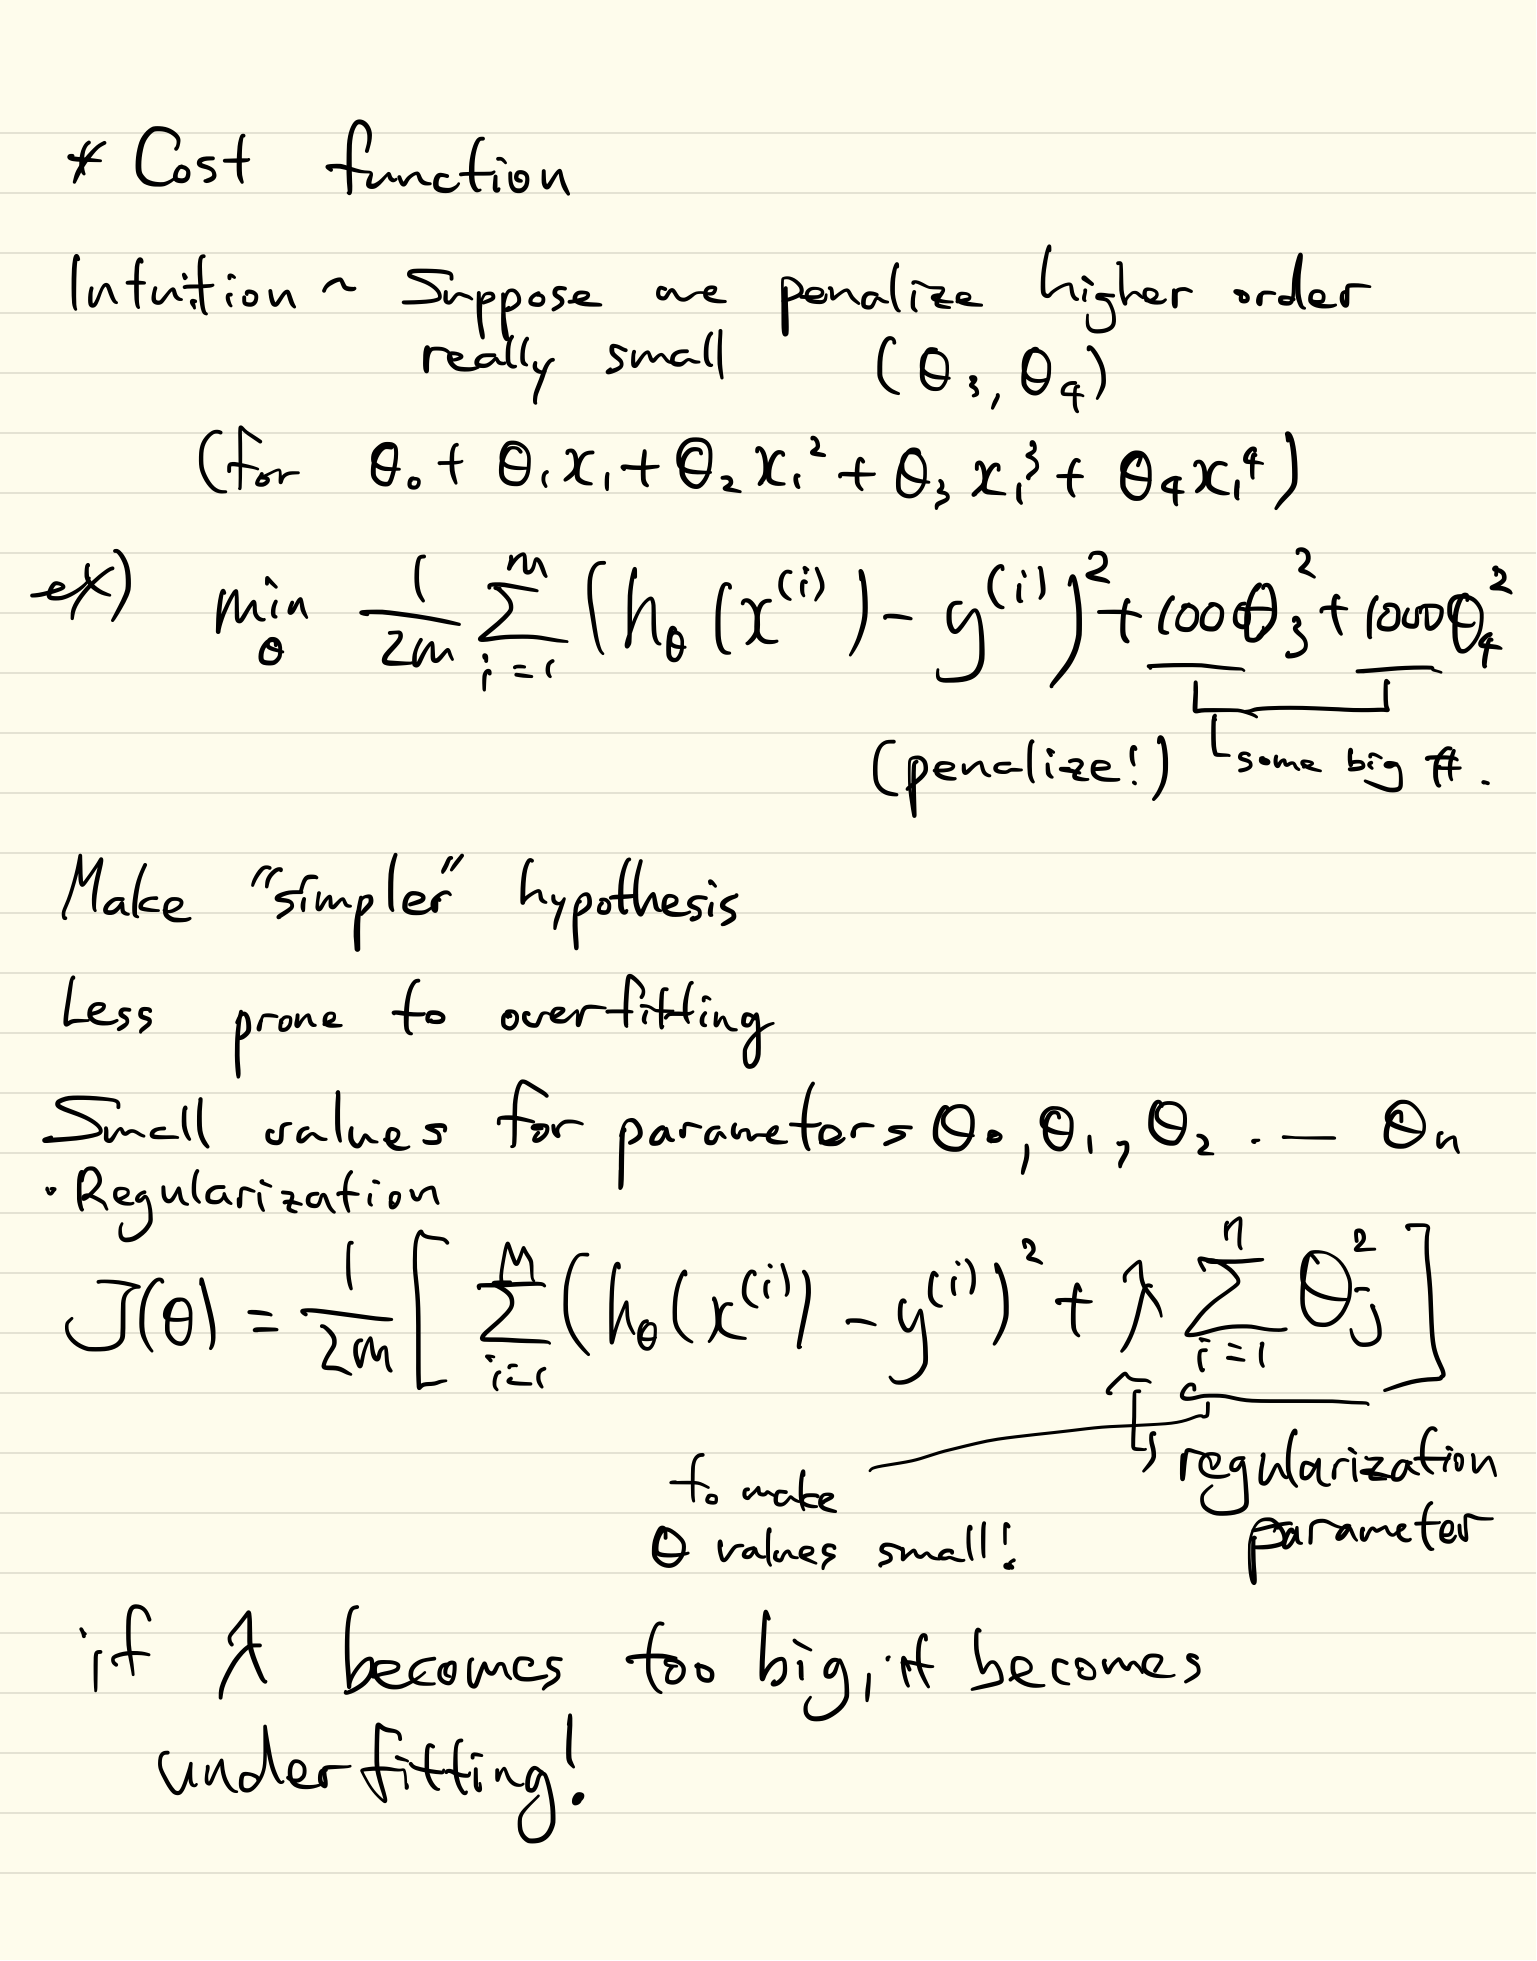 * Cost function
Intuition ~ Suppose we penalize higher order
really small (θ₃, θ₄)
(for θ₀ + θ₁x₁ + θ₂x₁² + θ₃x₁³ + θ₄x₁⁴)
ex) min_θ 1/2m Σ_{i=1}^{m} (h_θ(x^(i)) - y^(i))² + 1000θ₃² + 1000θ₄²
(penalize!) some big #.
Make "simpler" hypothesis
Less prone to overfitting
Small values for parameters θ₀, θ₁, θ₂ .— θₙ
· Regularization
J(θ) = 1/2m [ Σ_{i=1}^{m} (h_θ(x^(i)) - y^(i))² + λ Σ_{i=1}^{n} θ_j² ]
to make
θ values small!
regularization
parameter
if λ becomes too big, it becomes
underfitting!